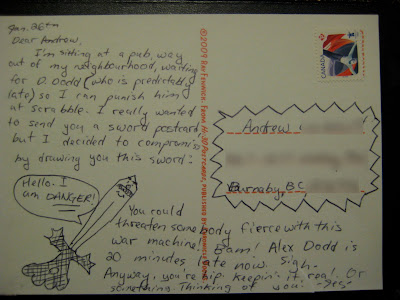 Jan. 26th
Dear Andrew,
I'm sitting at a pub, way
out of my neighbourhood, waiting
for D. Dodd (who is predictably
late) so I can punish him
at scrabble. I really wanted
to send you a sword postcard,
but I decided to compromise
by drawing you this sword:
Hello. I
am DANGER!
You could
threaten somebody fierce with this
war machine! Bam! Alex Dodd is
20 minutes late now. Sigh.
Anyway, you're hip. Keepin' it real. Or
something. Thinking of you.
©2009 Ray Fenwick. From
CANADA
Andrew
Burnaby, BC